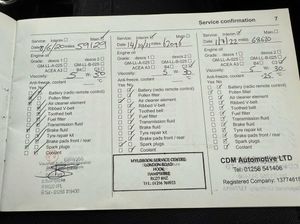 Service confirmation 7
Service: Interim Main
Date 59129
Engine oil
Grade: dexos 1 dexos 2
GM-LL-A-025 GM-LL-B-025
ACEA A3 B4 C
Viscosity: 5 30
Anti-freeze, coolant
Yes No
Battery (radio remote control)
Pollen filter
Air cleaner element
Ribbed V-belt
Toothed belt
Fuel filter
Transmission fluid
Brake fluid
Tyre repair kit
Brake pads front / rear
Spark plugs
Coolant
Service: Interim Main
Date
Engine oil
Grade: dexos 1 dexos 2
GM-LL-A-025 GM-LL-B-025
ACEA A3 B4 C
Viscosity: 5 30
Anti-freeze, coolant
Yes No
Battery (radio remote control)
Pollen filter
Air cleaner element
Ribbed V-belt
Toothed belt
Fuel filter
Transmission fluid
Brake fluid
Tyre repair kit
Brake pads front / rear
Spark plugs
Coolant
HOOK
HAMPSHIRE
Service: Interim Main
Date 68620
Engine oil
Grade: dexos 1 dexos 2
GM-LL-A-025 GM-LL-B-025
ACEA A3 B4 C
Viscosity: 5 30
Anti-freeze, coolant
Yes No
Battery (radio remote control)
Pollen filter
Air cleaner element
Ribbed V-belt
Toothed belt
Fuel filter
Transmission fluid
Brake fluid
Tyre repair kit
Brake pads front / rear
Spark plugs
Coolant
CDM Automotive LTD
Tel: 01256 541406
Registered Company: